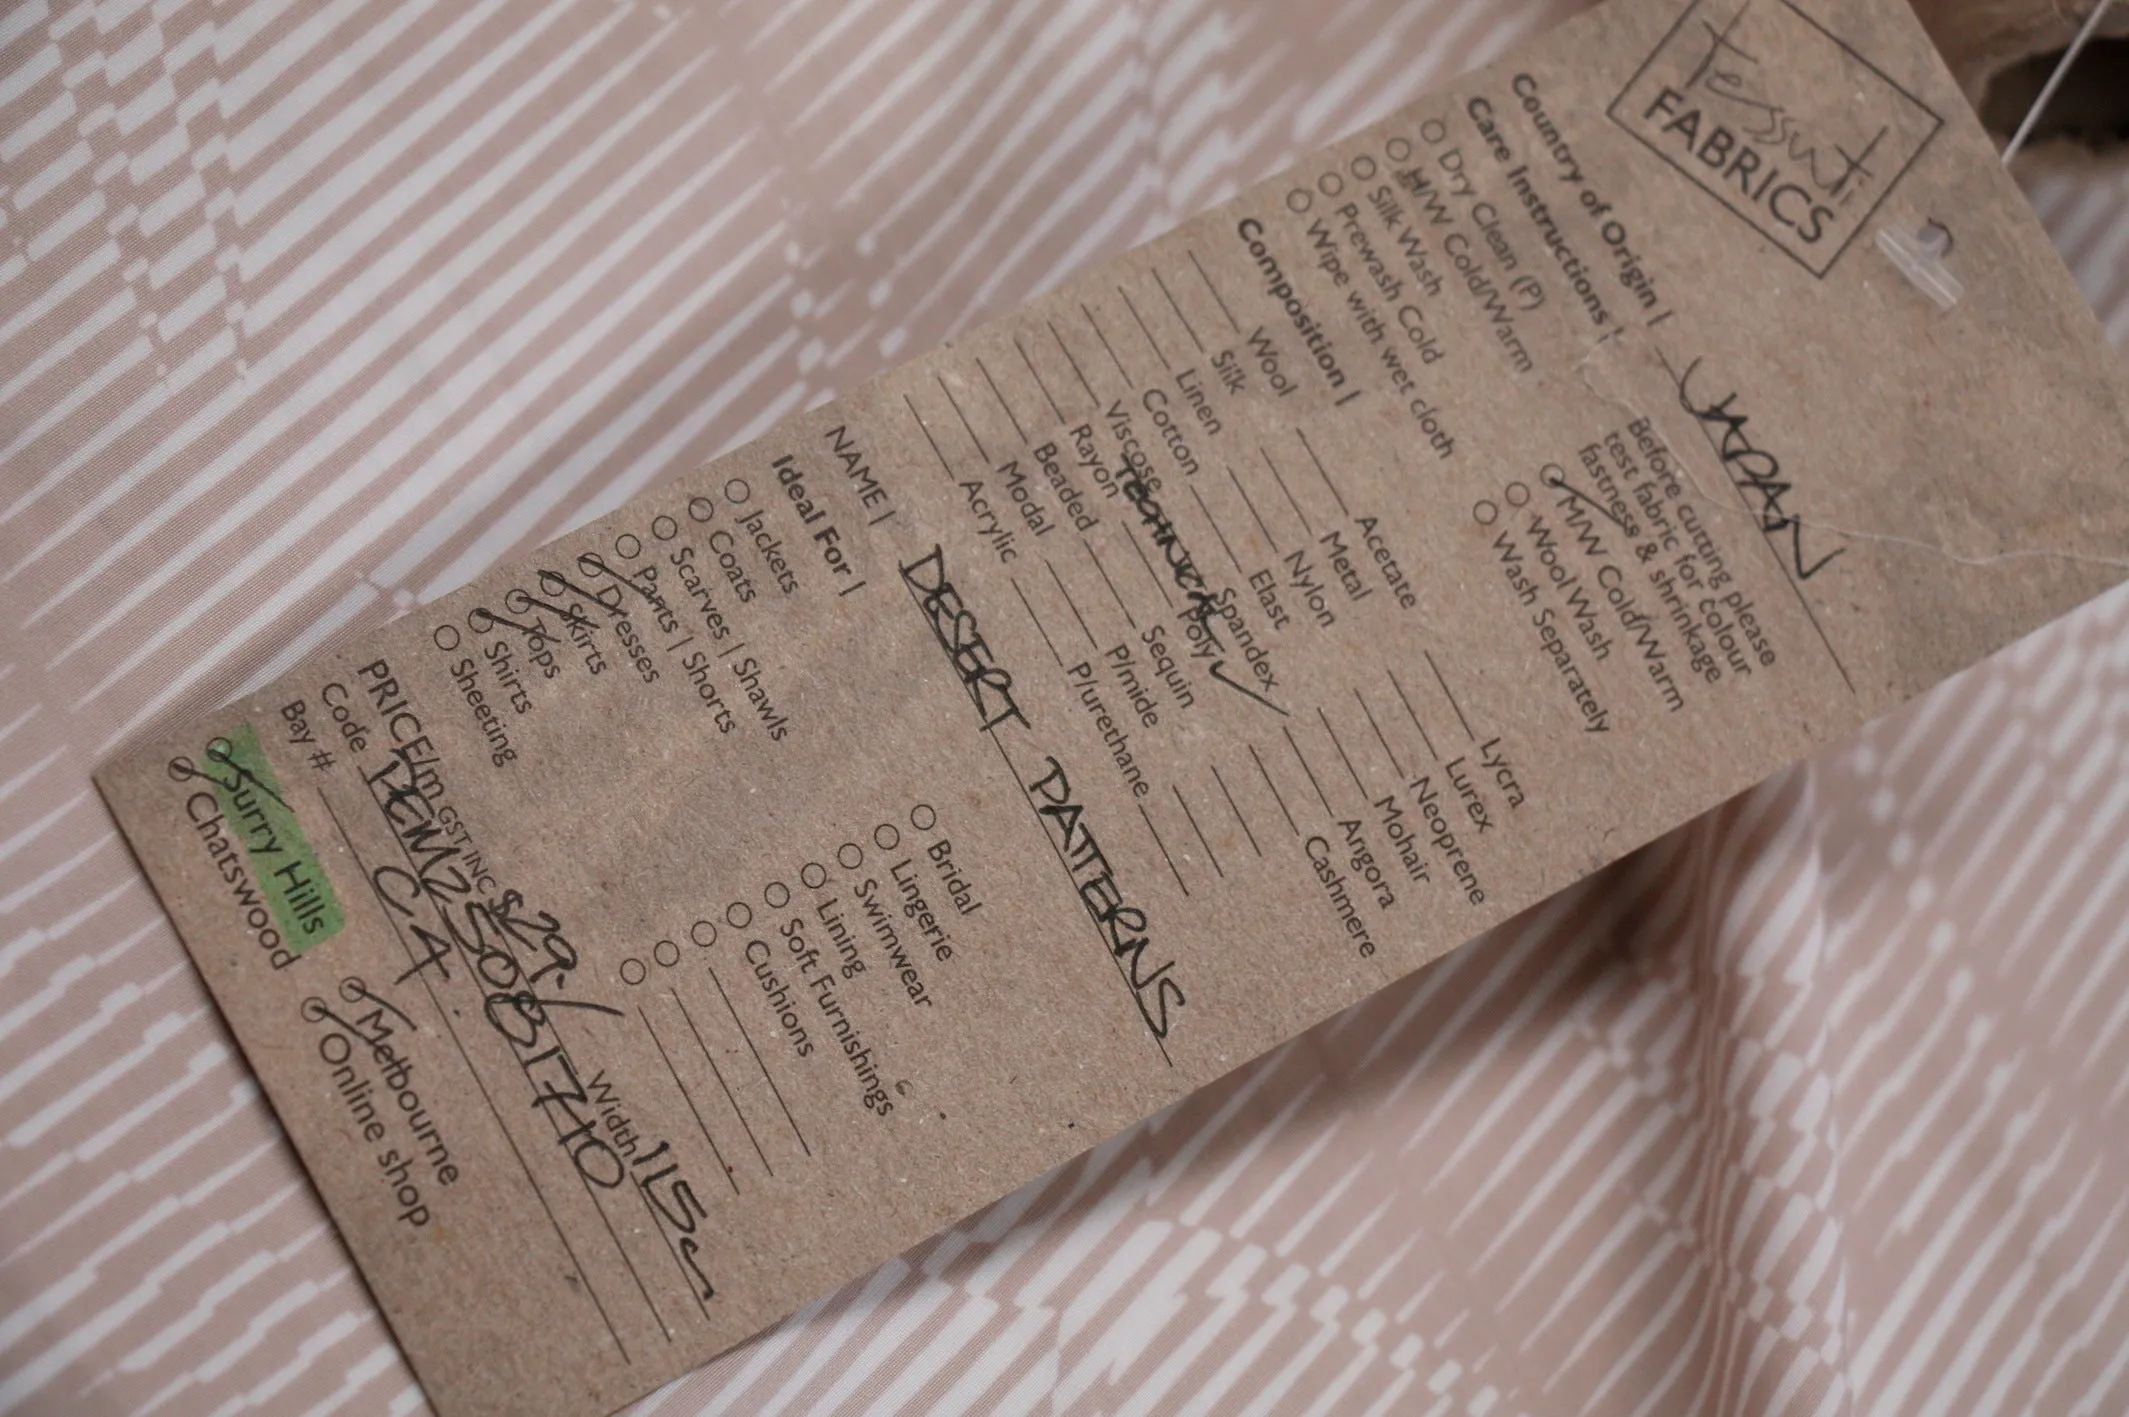 Tessuti
FABRICS
Country of Origin | JAPAN
Care Instructions |
Dry Clean (P)
H/W Cold/Warm
Silk Wash
Prewash Cold
Wipe with wet cloth
Before cutting please
test fabric for colour
fastness & shrinkage
M/W Cold/Warm
Wool Wash
Wash Separately
Composition |
Wool Acetate Lycra
Silk Metal Lurex
Linen Nylon Neoprene
Cotton Elast Mohair
Viscose Spandex Angora
Rayon TECHNICAL Poly ✓ Cashmere
Beaded Sequin
Modal P/mide
Acrylic P/urethane
NAME | DESERT PATTERNS
Ideal For |
Jackets Bridal
Coats Lingerie
Scarves | Shawls Swimwear
Pants | Shorts Lining
Dresses Soft Furnishings
Skirts Cushions
Tops
Shirts
Sheeting
PRICE/m GST INC $29.- Width 115c
Code
Bay # C4
Surry Hills Melbourne
Chatswood Online shop